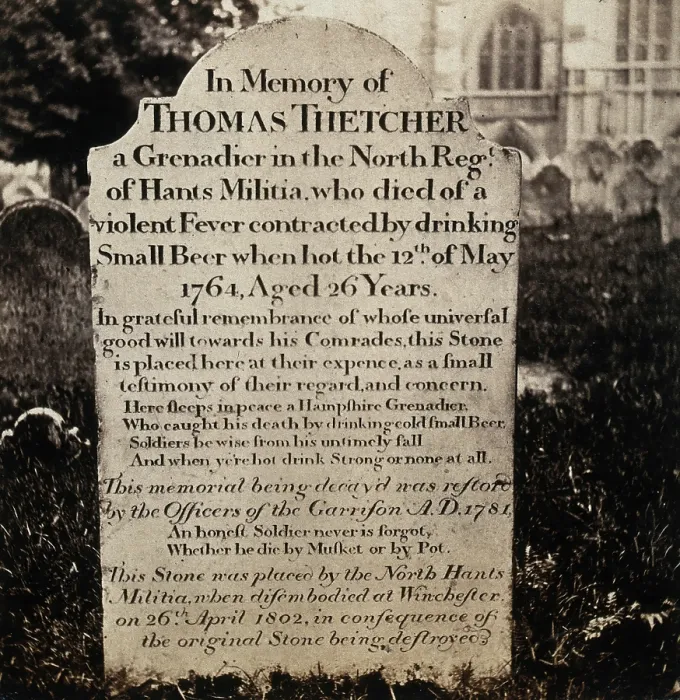 In Memory of
THOMAS THETCHER
a Grenadier in the North Regt.
of Hants Militia, who died of a
violent Fever contracted by drinking
Small Beer when hot the 12th. of May
1764, Aged 26 Years.
In grateful remembrance of whoſe univerſal
good will towards his Comrades, this Stone
is placed here at their expence, as a ſmall
teſtimony of their regard, and concern.
Here ſleeps in peace a Hampſhire Grenadier,
Who caught his death by drinking cold ſmall Beer,
Soldiers be wise from his untimely fall
And when ye're hot drink Strong or none at all.
This memorial being decay'd was reſtor'd
by the Officers of the Garriſon A.D. 1781.
An honeſt Soldier never is forgot,
Whether he die by Muſket or by Pot.
This Stone was placed by the North Hants
Militia, when diſembodied at Wincheſter,
on 26th. April 1802, in conſequence of
the original Stone being deſtroyed.